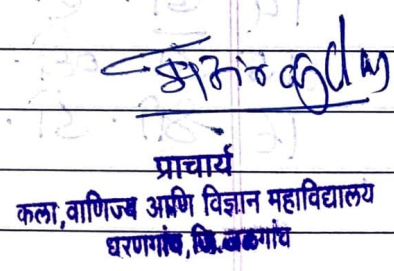 प्राचार्य
कला,वाणिज्य आणि विज्ञान महाविद्यालय
धरणगांव,जि.जळगांव